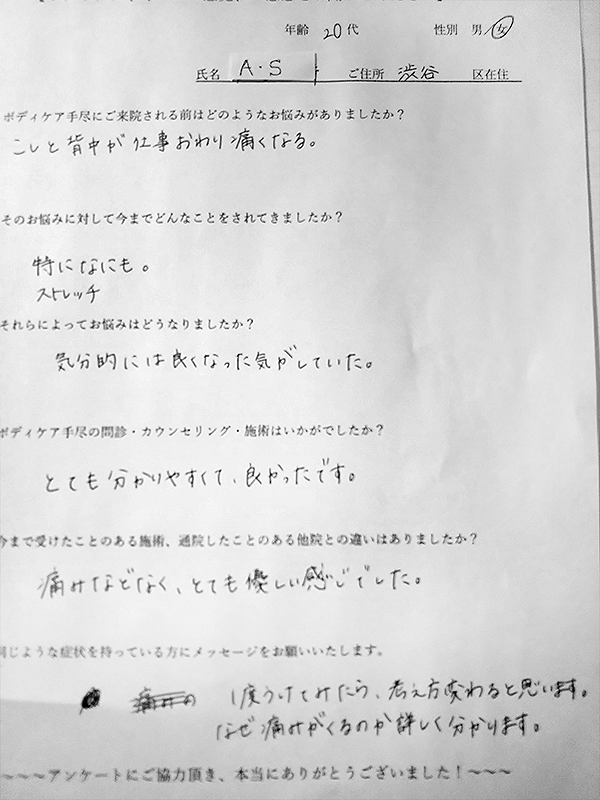 年齢 20代 性別 男/女
氏名 A・S ご住所 渋谷 区在住
ボディケア手尽にご来院される前はどのようなお悩みがありましたか？
こしと背中が仕事おわり痛くなる。
そのお悩みに対して今までどんなことをされてきましたか？
特になにも。
ストレッチ
それらによってお悩みはどうなりましたか？
気分的には良くなった気がしていた。
ボディケア手尽の問診・カウンセリング・施術はいかがでしたか？
とても分かりやすくて、良かったです。
今まで受けたことのある施術、通院したことのある他院との違いはありましたか？
痛みなどなく、とても優しい感じでした。
同じような症状を持っている方にメッセージをお願いいたします。
1度うけてみたら、考え方変わると思います。
なぜ痛みがくるのか詳しく分かります。
～～～アンケートにご協力頂き、本当にありがとうございました！～～～